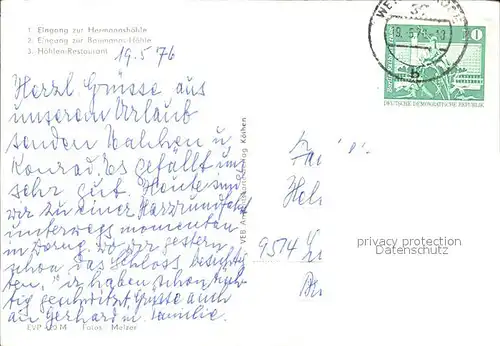 1. Eingang zur Hermannshöhle
2. Eingang zur Baumanns-Höhle
3. Höhlen-Restaurant
19.5.76
Herzl. Grüsse aus
unserem Urlaub
senden
Konrad. Es gefällt uns
sehr gut. Heute sind
wir zu einer Harzrundfahrt
unterwegs momentan
in wo wir gestern
schon das Schloss besichtig
ten. haben schon tüch
tig geschwitzt. Grüsse auch
an Gerhard m. Familie.
EVP M Fotos: Melzer
VEB Köthen
19.-5.76-13
b
10
DEUTSCHE DEMOKRATISCHE REPUBLIK
Fa
Hel
9514
privacy protection
Datenschutz